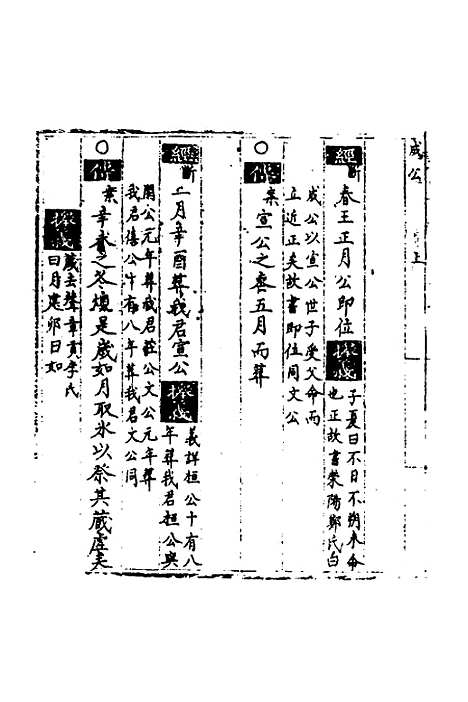 成公 上
經 斷 春王正月公即位
子夏曰不日不朔未命
也正故書滎陽鄭氏曰
成公以宣公世子受父命而
立近正矣故書即位同文公
傳
案 宣公之喪五月而葬
經 斷 二月辛酉葬我君宣公
義詳桓公十有八
年葬我君桓公與
閔公元年葬我君莊公文公元年葬
我君僖公十有八年葬我君文公同
傳
案 辛酉之冬燠是歲如月取冰以祭其藏虛矣
曰月建卯日如